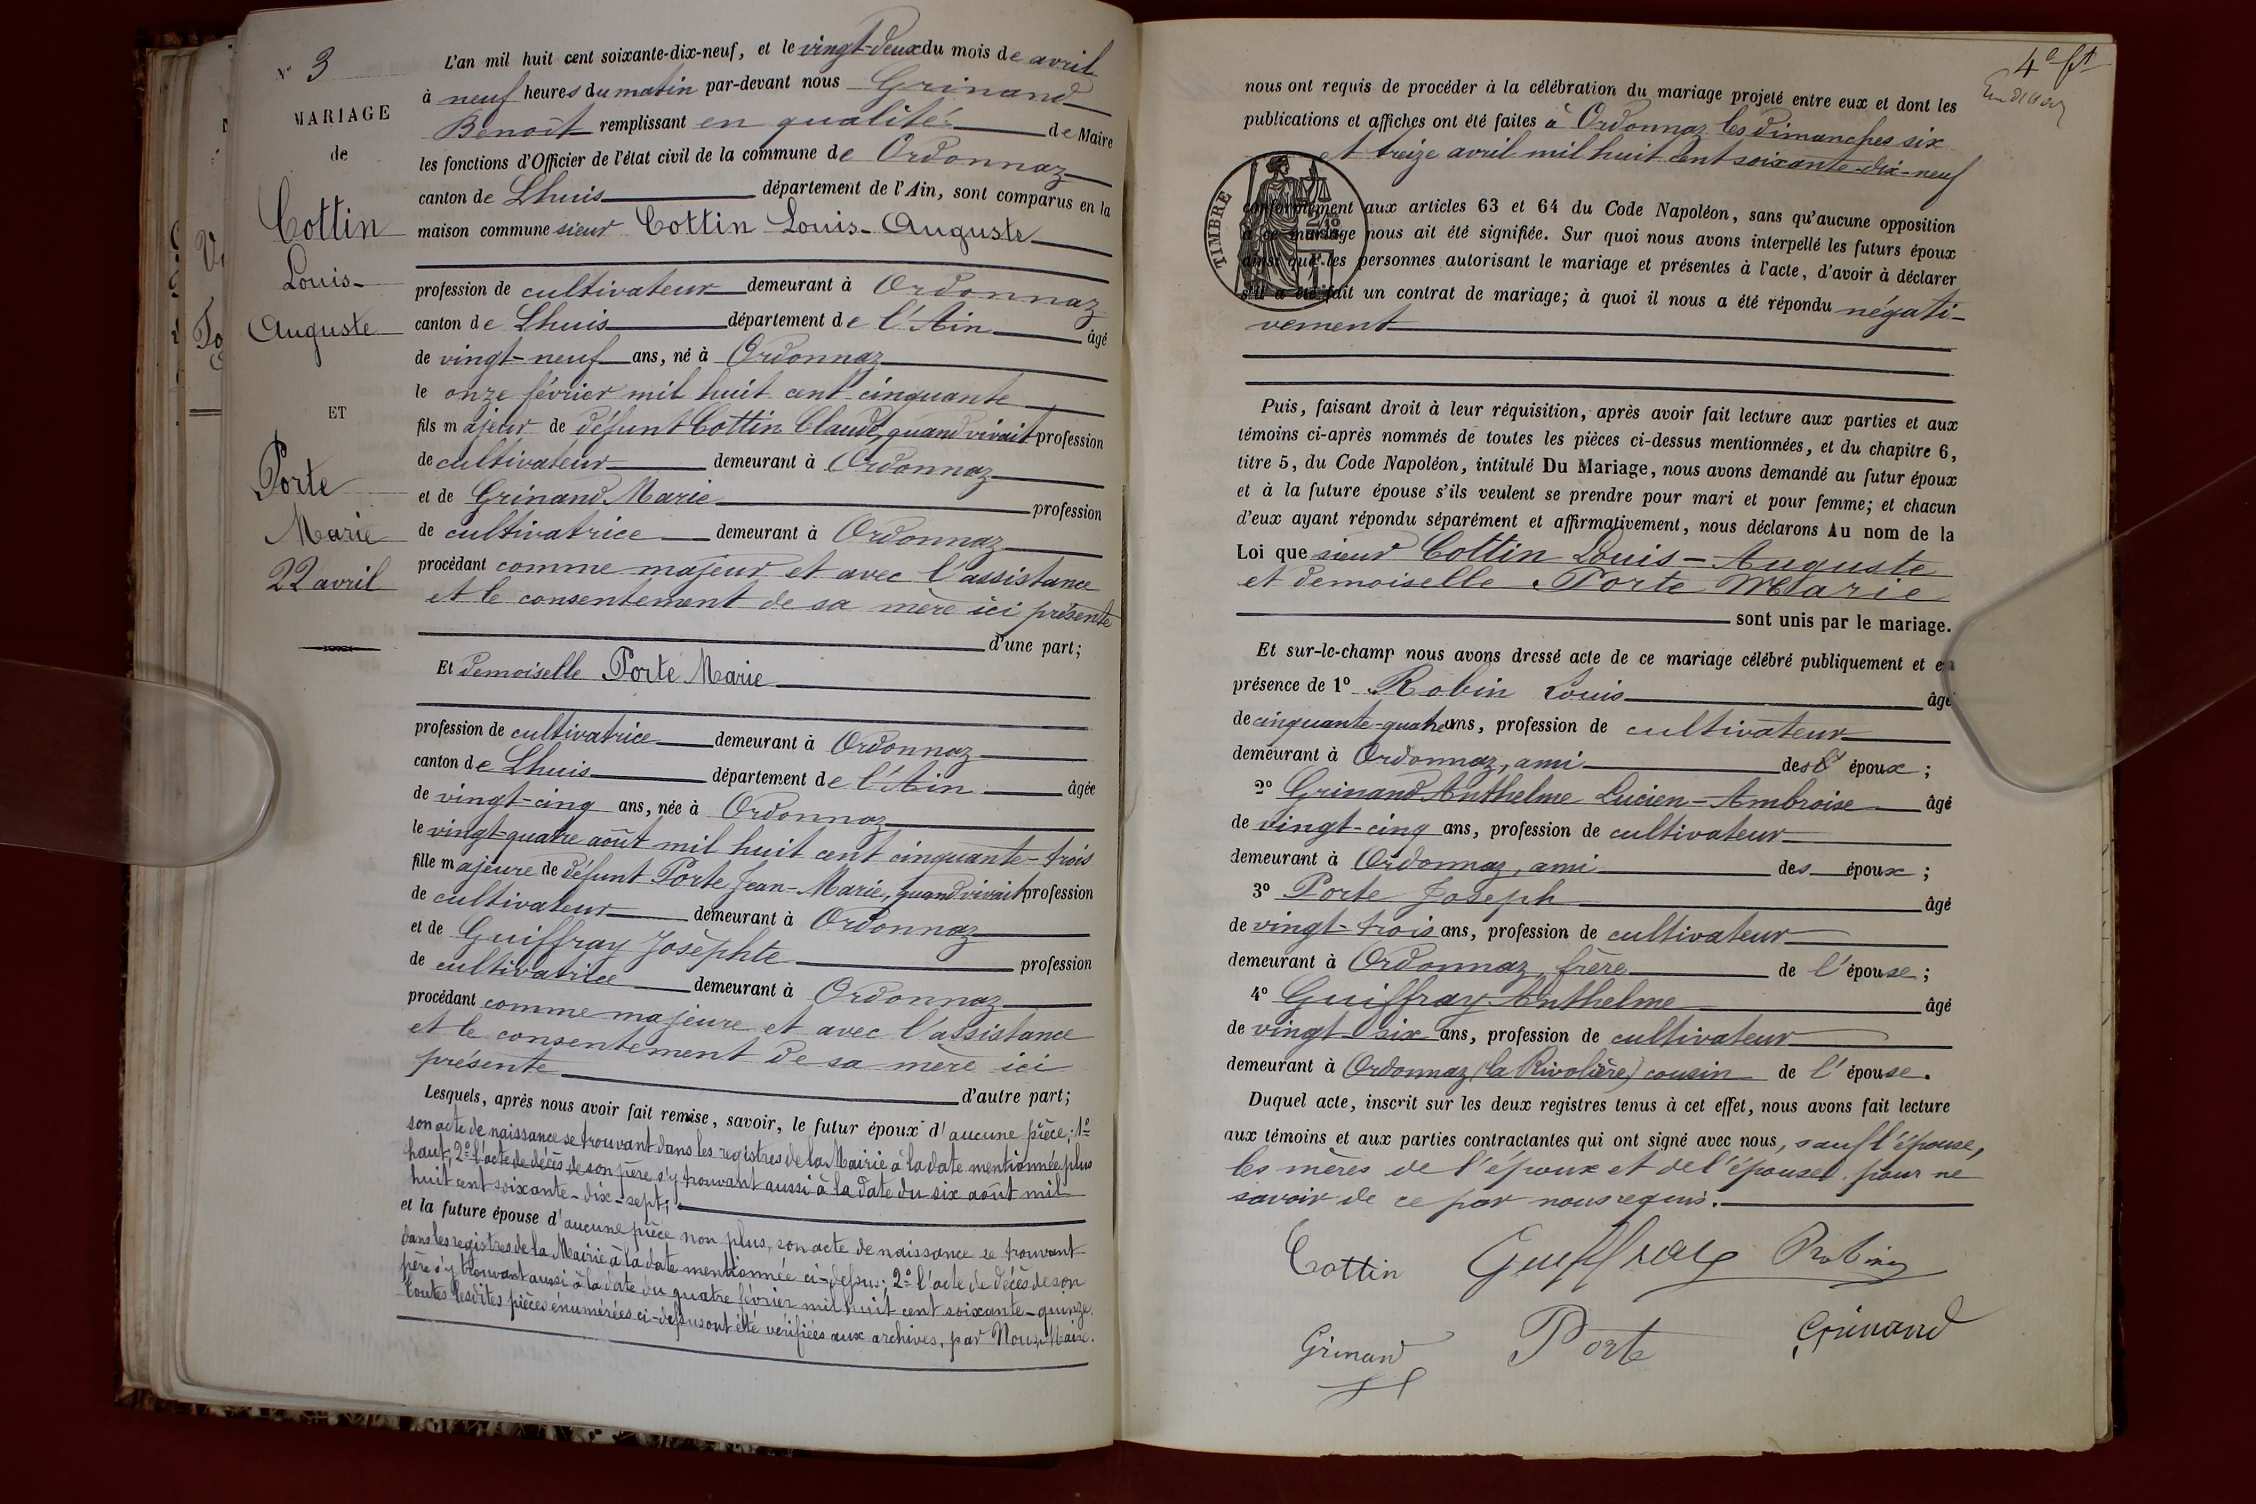 N° 3
MARIAGE
de
Cottin
Louis-
Auguste
ET
Porte
Marie
22 avril
L'an mil huit cent soixante-dix-neuf, et le vingt-deux du mois de avril
à neuf heures du matin par-devant nous Grinand
Benoît remplissant en qualité de Maire
les fonctions d'Officier de l'état civil de la commune de Ordonnaz
canton de Lhuis département de l'Ain, sont comparus en la
maison commune sieur Cottin Louis-Auguste
profession de cultivateur demeurant à Ordonnaz
canton de Lhuis département de l'Ain âgé
de vingt-neuf ans, né à Ordonnaz
le onze février mil huit cent cinquante
fils majeur de défunt Cottin Claude, quand vivait profession
de cultivateur demeurant à Ordonnaz
et de Grinand Marie profession
de cultivatrice demeurant à Ordonnaz
procédant comme majeur et avec l'assistance
et le consentement de sa mère ici présente
d'une part;
Et demoiselle Porte Marie
profession de cultivatrice demeurant à Ordonnaz
canton de Lhuis département de l'Ain âgée
de vingt-cinq ans, née à Ordonnaz
le vingt-quatre août mil huit cent cinquante-trois
fille majeure de défunt Porte Jean-Marie, quand vivait profession
de cultivateur demeurant à Ordonnaz
et de Guiffray Josephte profession
de cultivatrice demeurant à Ordonnaz
procédant comme majeure et avec l'assistance
et le consentement de sa mère ici
présente
d'autre part;
Lesquels, après nous avoir fait remise, savoir, le futur époux d'aucune pièce; 1°
son acte de naissance se trouvant dans les registres de la Mairie à la date mentionnée plus
haut; 2° l'acte de décès de son père s'y trouvant aussi à la date du six août mil
huit cent soixante-dix-sept;
et la future épouse d'aucune pièce non plus, son acte de naissance se trouvant
dans les registres de la Mairie à la date mentionnée ci-dessus; 2° l'acte de décès de son
père s'y trouvant aussi à la date du quatre février mil huit cent soixante-quinze.
Toutes lesdites pièces énumérées ci-dessus ont été vérifiées aux archives, par Nous, Maire.
4e ft
nous ont requis de procéder à la célébration du mariage projeté entre eux et dont les
publications et affiches ont été faites à Ordonnaz les dimanches six
et treize avril mil huit cent soixante-dix-neuf
TIMBRE
conformément aux articles 63 et 64 du Code Napoléon, sans qu'aucune opposition
à ce mariage nous ait été signifiée. Sur quoi nous avons interpellé les futurs époux
ainsi que les personnes autorisant le mariage et présentes à l'acte, d'avoir à déclarer
s'il a été fait un contrat de mariage; à quoi il nous a été répondu négati-
vement
Puis, faisant droit à leur réquisition, après avoir fait lecture aux parties et aux
témoins ci-après nommés de toutes les pièces ci-dessus mentionnées, et du chapitre 6,
titre 5, du Code Napoléon, intitulé Du Mariage, nous avons demandé au futur époux
et à la future épouse s'ils veulent se prendre pour mari et pour femme; et chacun
d'eux ayant répondu séparément et affirmativement, nous déclarons Au nom de la
Loi que sieur Cottin Louis-Auguste
et demoiselle Porte Marie
sont unis par le mariage.
Et sur-le-champ nous avons dressé acte de ce mariage célébré publiquement et en
présence de 1° Robin Louis âgé
de cinquante-quatre ans, profession de cultivateur
demeurant à Ordonnaz, ami des époux;
2° Grinand Anthelme Lucien-Ambroise âgé
de vingt-cinq ans, profession de cultivateur
demeurant à Ordonnaz, ami des époux;
3° Porte Joseph âgé
de vingt-trois ans, profession de cultivateur
demeurant à Ordonnaz, frère de l'épouse;
4° Guiffray Anthelme âgé
de vingt-six ans, profession de cultivateur
demeurant à Ordonnaz (la Rivolière) cousin de l'épouse.
Duquel acte, inscrit sur les deux registres tenus à cet effet, nous avons fait lecture
aux témoins et aux parties contractantes qui ont signé avec nous, sauf l'épouse,
les mères de l'époux et de l'épouse pour ne
savoir de ce par nous requis.
Cottin Guiffray Robin
Grinand Porte Grinand